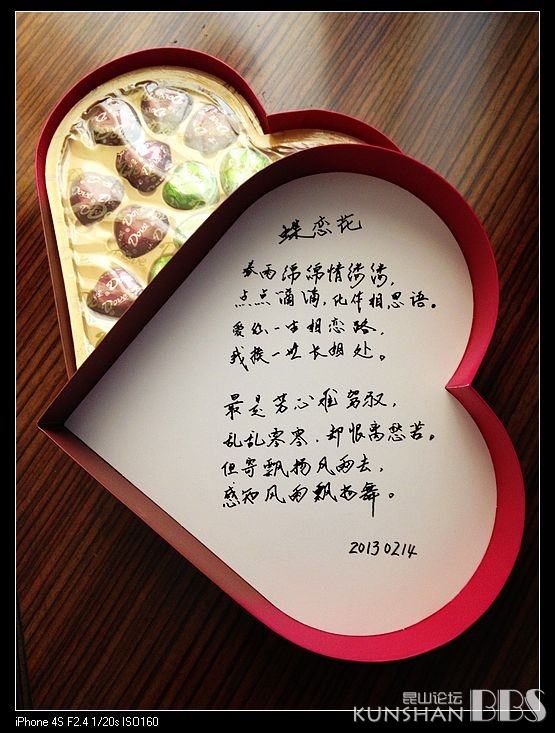 蝶恋花
春雨绵绵情缕缕,
点点滴滴,化作相思语。
爱你一生相恋路,
我挨一世长相处。
最是芳心难驾驭,
乱乱零零,却恨离愁苦。
但寄飘扬风雨去,
感知风雨飘扬舞。
20130214
Dove
昆山论坛
KUNSHAN BBS
iPhone 4S F2.4 1/20s ISO160